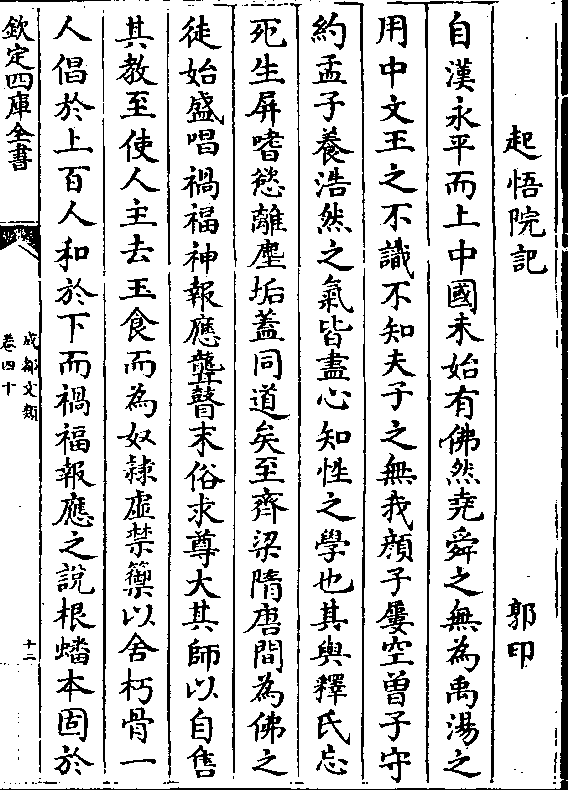 起悟院記　郭印
自漢永平而上中國未始有佛然堯舜之無為禹湯之
用中文王之不識不知夫子之無我顔子屢空曾子守
約孟子養浩然之氣皆盡心知性之學也其與釋氏忘
死生屏嗜慾離塵垢蓋同道矣至齊梁隋唐間為佛之
徒始盛唱禍福神報應聾瞽末俗求尊大其師以自售
其教至使人主去玉食而為奴隸虛禁籞以舍朽骨一
人倡於上百人和於下而禍福報應之說根蟠本固於
欽定四庫全書
成都文類
卷四十
十二